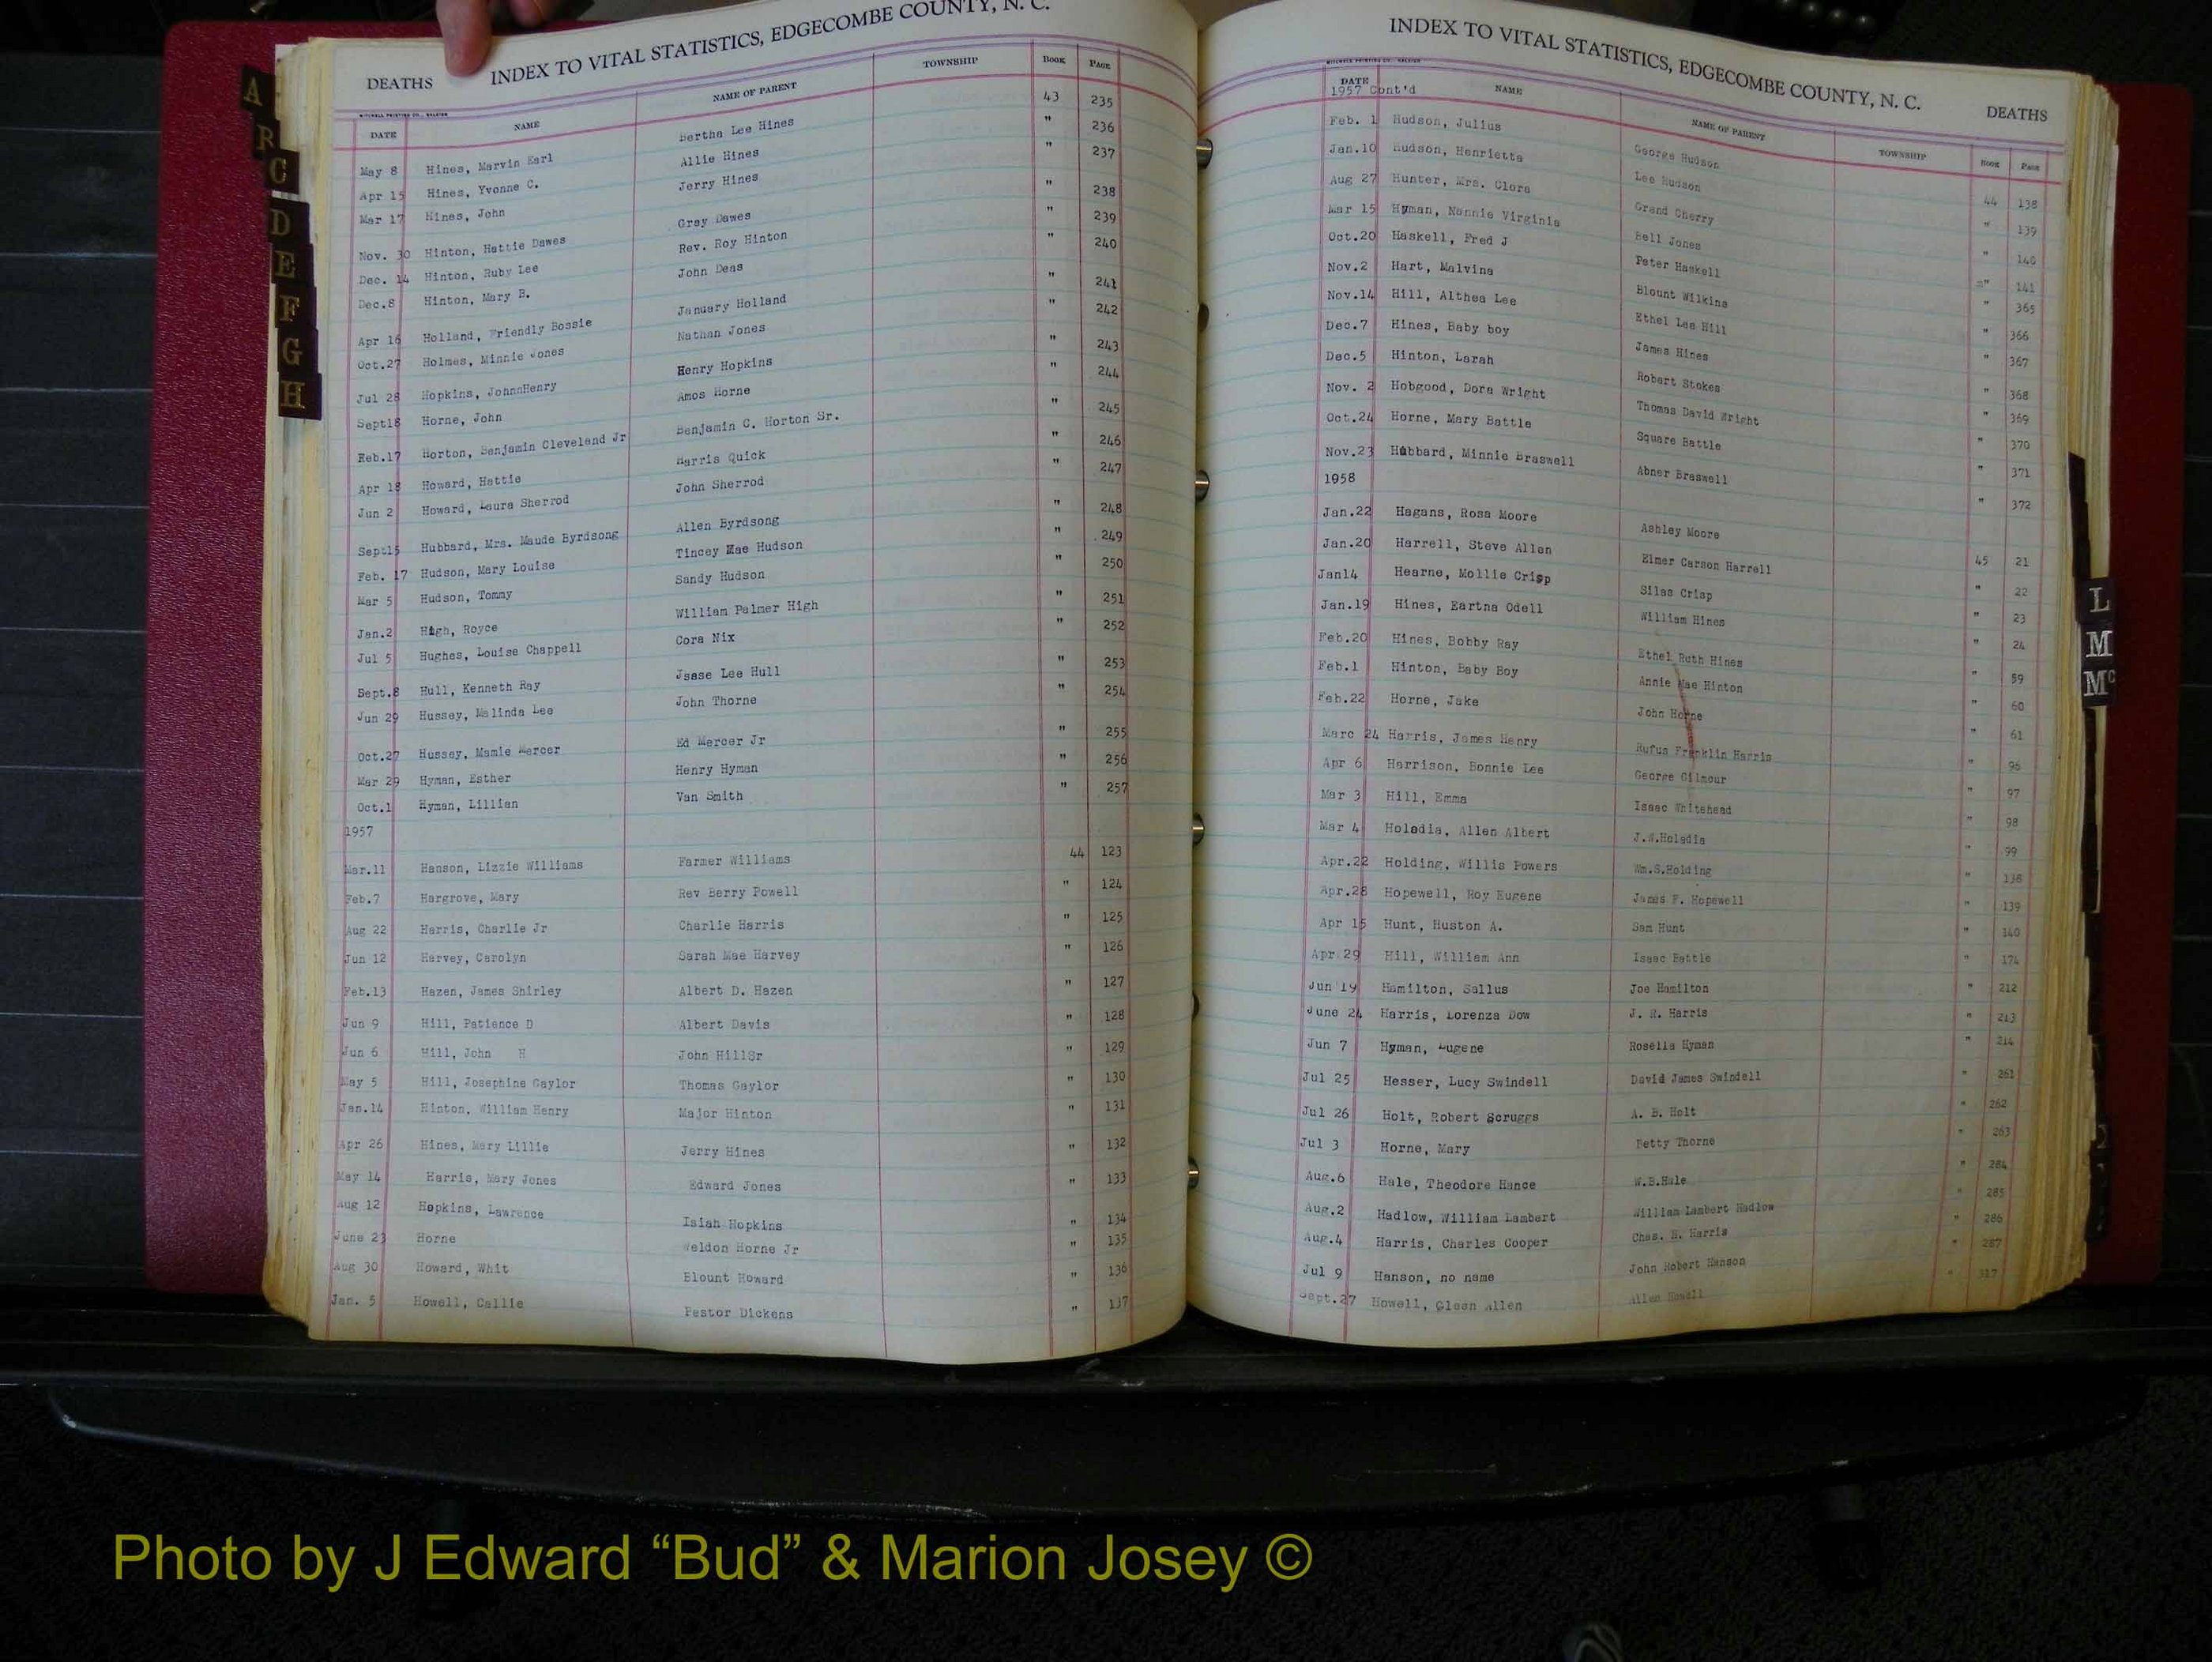 INDEX TO VITAL STATISTICS, EDGECOMBE COUNTY, N. C.
DEATHS
DATE NAME NAME OF PARENT TOWNSHIP BOOK PAGE
May 8 Hines, Marvin Earl Bertha Lee Hines 43 235
Apr 15 Hines, Yvonne C. Allie Hines " 236
Mar 17 Hines, John Jerry Hines " 237
Nov. 30 Hinton, Hattie Dawes Gray Dawes " 238
Dec. 14 Hinton, Ruby Lee Rev. Roy Hinton " 239
Dec.8 Hinton, Mary B. John Deas " 240
Apr 16 Holland, Friendly Bossie January Holland " 241
Oct.27 Holmes, Minnie Jones Nathan Jones " 242
Jul 28 Hopkins, JohnnHenry Henry Hopkins " 243
Sept18 Horne, John Amos Horne " 244
Feb.17 Horton, Benjamin Cleveland Jr Benjamin C. Horton Sr. " 245
Apr 18 Howard, Hattie Harris Quick " 246
Jun 2 Howard, Laura Sherrod John Sherrod " 247
Sept15 Hubbard, Mrs. Maude Byrdsong Allen Byrdsong " 248
Feb. 17 Hudson, Mary Louise Tincey Mae Hudson " 249
Mar 5 Hudson, Tommy Sandy Hudson " 250
Jan.2 High, Royce William Palmer High " 251
Jul 5 Hughes, Louise Chappell Cora Nix " 252
Sept.8 Hull, Kenneth Ray Jsase Lee Hull " 253
Jun 29 Hussey, Malinda Lee John Thorne " 254
Oct.27 Hussey, Mamie Mercer Ed Mercer Jr " 255
Mar 29 Hyman, Esther Henry Hyman " 256
Oct.1 Hyman, Lillian Van Smith " 257
1957
Mar.11 Hanson, Lizzie Williams Farmer Williams 44 123
Feb.7 Hargrove, Mary Rev Berry Powell " 124
Aug 22 Harris, Charlie Jr Charlie Harris " 125
Jun 12 Harvey, Carolyn Sarah Mae Harvey " 126
Feb.13 Hazen, James Shirley Albert D. Hazen " 127
Jun 9 Hill, Patience D Albert Davis " 128
Jun 6 Hill, John H John HillSr " 129
May 5 Hill, Josephine Gaylor Thomas Gaylor " 130
Jan.14 Hinton, William Henry Major Hinton " 131
Apr 26 Hines, Mary Lillie Jerry Hines " 132
May 14 Harris, Mary Jones Edward Jones " 133
Aug 12 Hopkins, Lawrence Isiah Hopkins " 134
June 23 Horne Weldon Horne Jr " 135
Aug 30 Howard, Whit Blount Howard " 136
Jan. 5 Howell, Callie Pestor Dickens " 137
A
B
C
D
E
F
G
H
INDEX TO VITAL STATISTICS, EDGECOMBE COUNTY, N. C.
DEATHS
DATE NAME NAME OF PARENT TOWNSHIP BOOK PAGE
1957 Cont'd
Feb. 1 Hudson, Julius George Hudson 44 138
Jan.10 Hudson, Henrietta Lee Hudson " 139
Aug 27 Hunter, Mrs. Clora Grand Cherry " 140
Mar 15 Hyman, Nannie Virginia Bell Jones " 141
Oct.20 Haskell, Fred J Peter Haskell " 365
Nov.2 Hart, Malvina Blount Wilkins " 366
Nov.14 Hill, Althea Lee Ethel Lee Hill " 367
Dec.7 Hines, Baby boy James Hines " 368
Dec.5 Hinton, Larah Robert Stokes " 369
Nov. 2 Hobgood, Dora Wright Thomas David Wright " 370
Oct.24 Horne, Mary Battle Square Battle " 371
Nov.23 Hubbard, Minnie Braswell Abner Braswell " 372
1958
Jan.22 Hagans, Rosa Moore Ashley Moore 45 21
Jan.20 Harrell, Steve Allen Elmer Carson Harrell " 22
Jan14 Hearne, Mollie Crisp Silas Crisp " 23
Jan.19 Hines, Eartna Odell William Hines " 24
Feb.20 Hines, Bobby Ray Ethel Ruth Hines " 59
Feb.1 Hinton, Baby Boy Annie Mae Hinton " 60
Feb.22 Horne, Jake John Horne " 61
Marc 24 Harris, James Henry Rufus Franklin Harris " 96
Apr 6 Harrison, Bonnie Lee George Gilmour " 97
Mar 3 Hill, Emma Isaac Whitehead " 98
Mar 4 Holadia, Allen Albert J.W.Holadia " 99
Apr.22 Holding, Willis Powers Wm.S.Holding " 138
Apr.28 Hopewell, Roy Eugene James F. Hopewell " 139
Apr 15 Hunt, Huston A. Sam Hunt " 140
Apr.29 Hill, William Ann Isaac Battle " 174
Jun 19 Hamilton, Sallus Joe Hamilton " 212
June 24 Harris, Lorenza Dow J. R. Harris " 213
Jun 7 Hyman, Eugene Rosella Hyman " 214
Jul 25 Hesser, Lucy Swindell David James Swindell " 261
Jul 26 Holt, Robert Scruggs A. B. Holt " 262
Jul 3 Horne, Mary Betty Thorne " 263
Aug.6 Hale, Theodore Hance W.B.Hale " 284
Aug.2 Hadlow, William Lambert William Lambert Hadlow " 285
Aug.4 Harris, Charles Cooper Chas. N. Harris " 286
Jul 9 Hanson, no name John Robert Hanson " 287
Sept.27 Howell, Gleen Allen Allen Howell " 317
L
M
Mc
Photo by J Edward “Bud” & Marion Josey ©